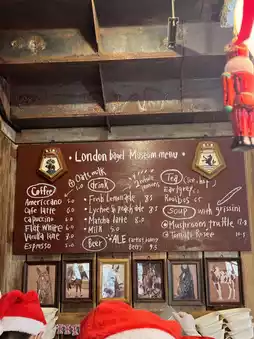 • London bagel Museum menu •
Coffee
Americano 5.0
Cafe Latte 6.0
Capuccino 6.0
Flat White 6.0
Vanilla latte 7.0
Espresso 5.0
Oats milk
drink
• Fresh Lemonade 8.
• peach ade 8.5
• Matcha latte 8.0
• Milk 5.0
Beer ALE
Berry 9.5
Tea (Ice, hot)
Earl grey
Rooibos
SOUP with grissini
@ Mushroom truffle
@ Tomato Rosee